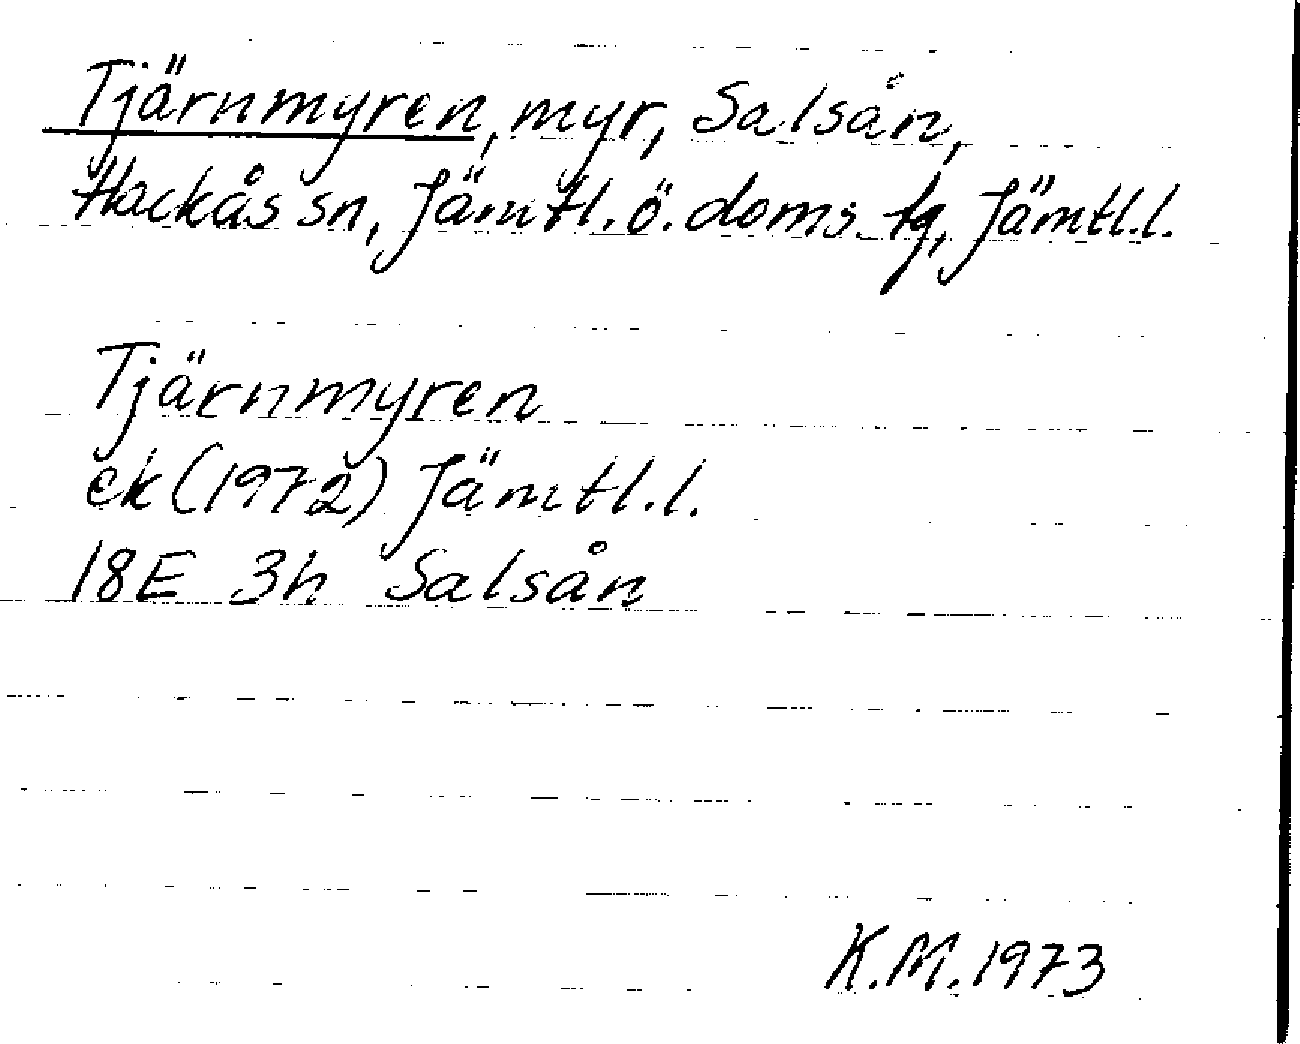 Tjärnmyren, myr, Salsån,
Hackås sn, Jämtl. ö. doms. tg, Jämtl.l.
Tjärnmyren
ek (1972) Jämtl.l.
18E 3h Salsån
K.M. 1973